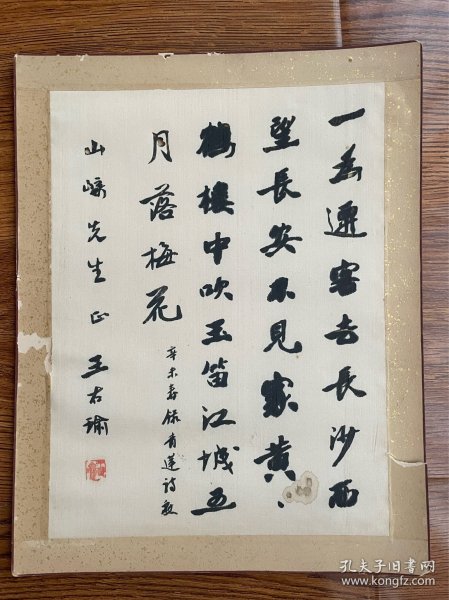 一為遷客去長沙西
望長安不見家黃
鶴樓中吹玉笛江城五
月落梅花
辛未春錄青蓮詩
先生正
王右瑜
孔夫子旧书网
www.kongfz.com